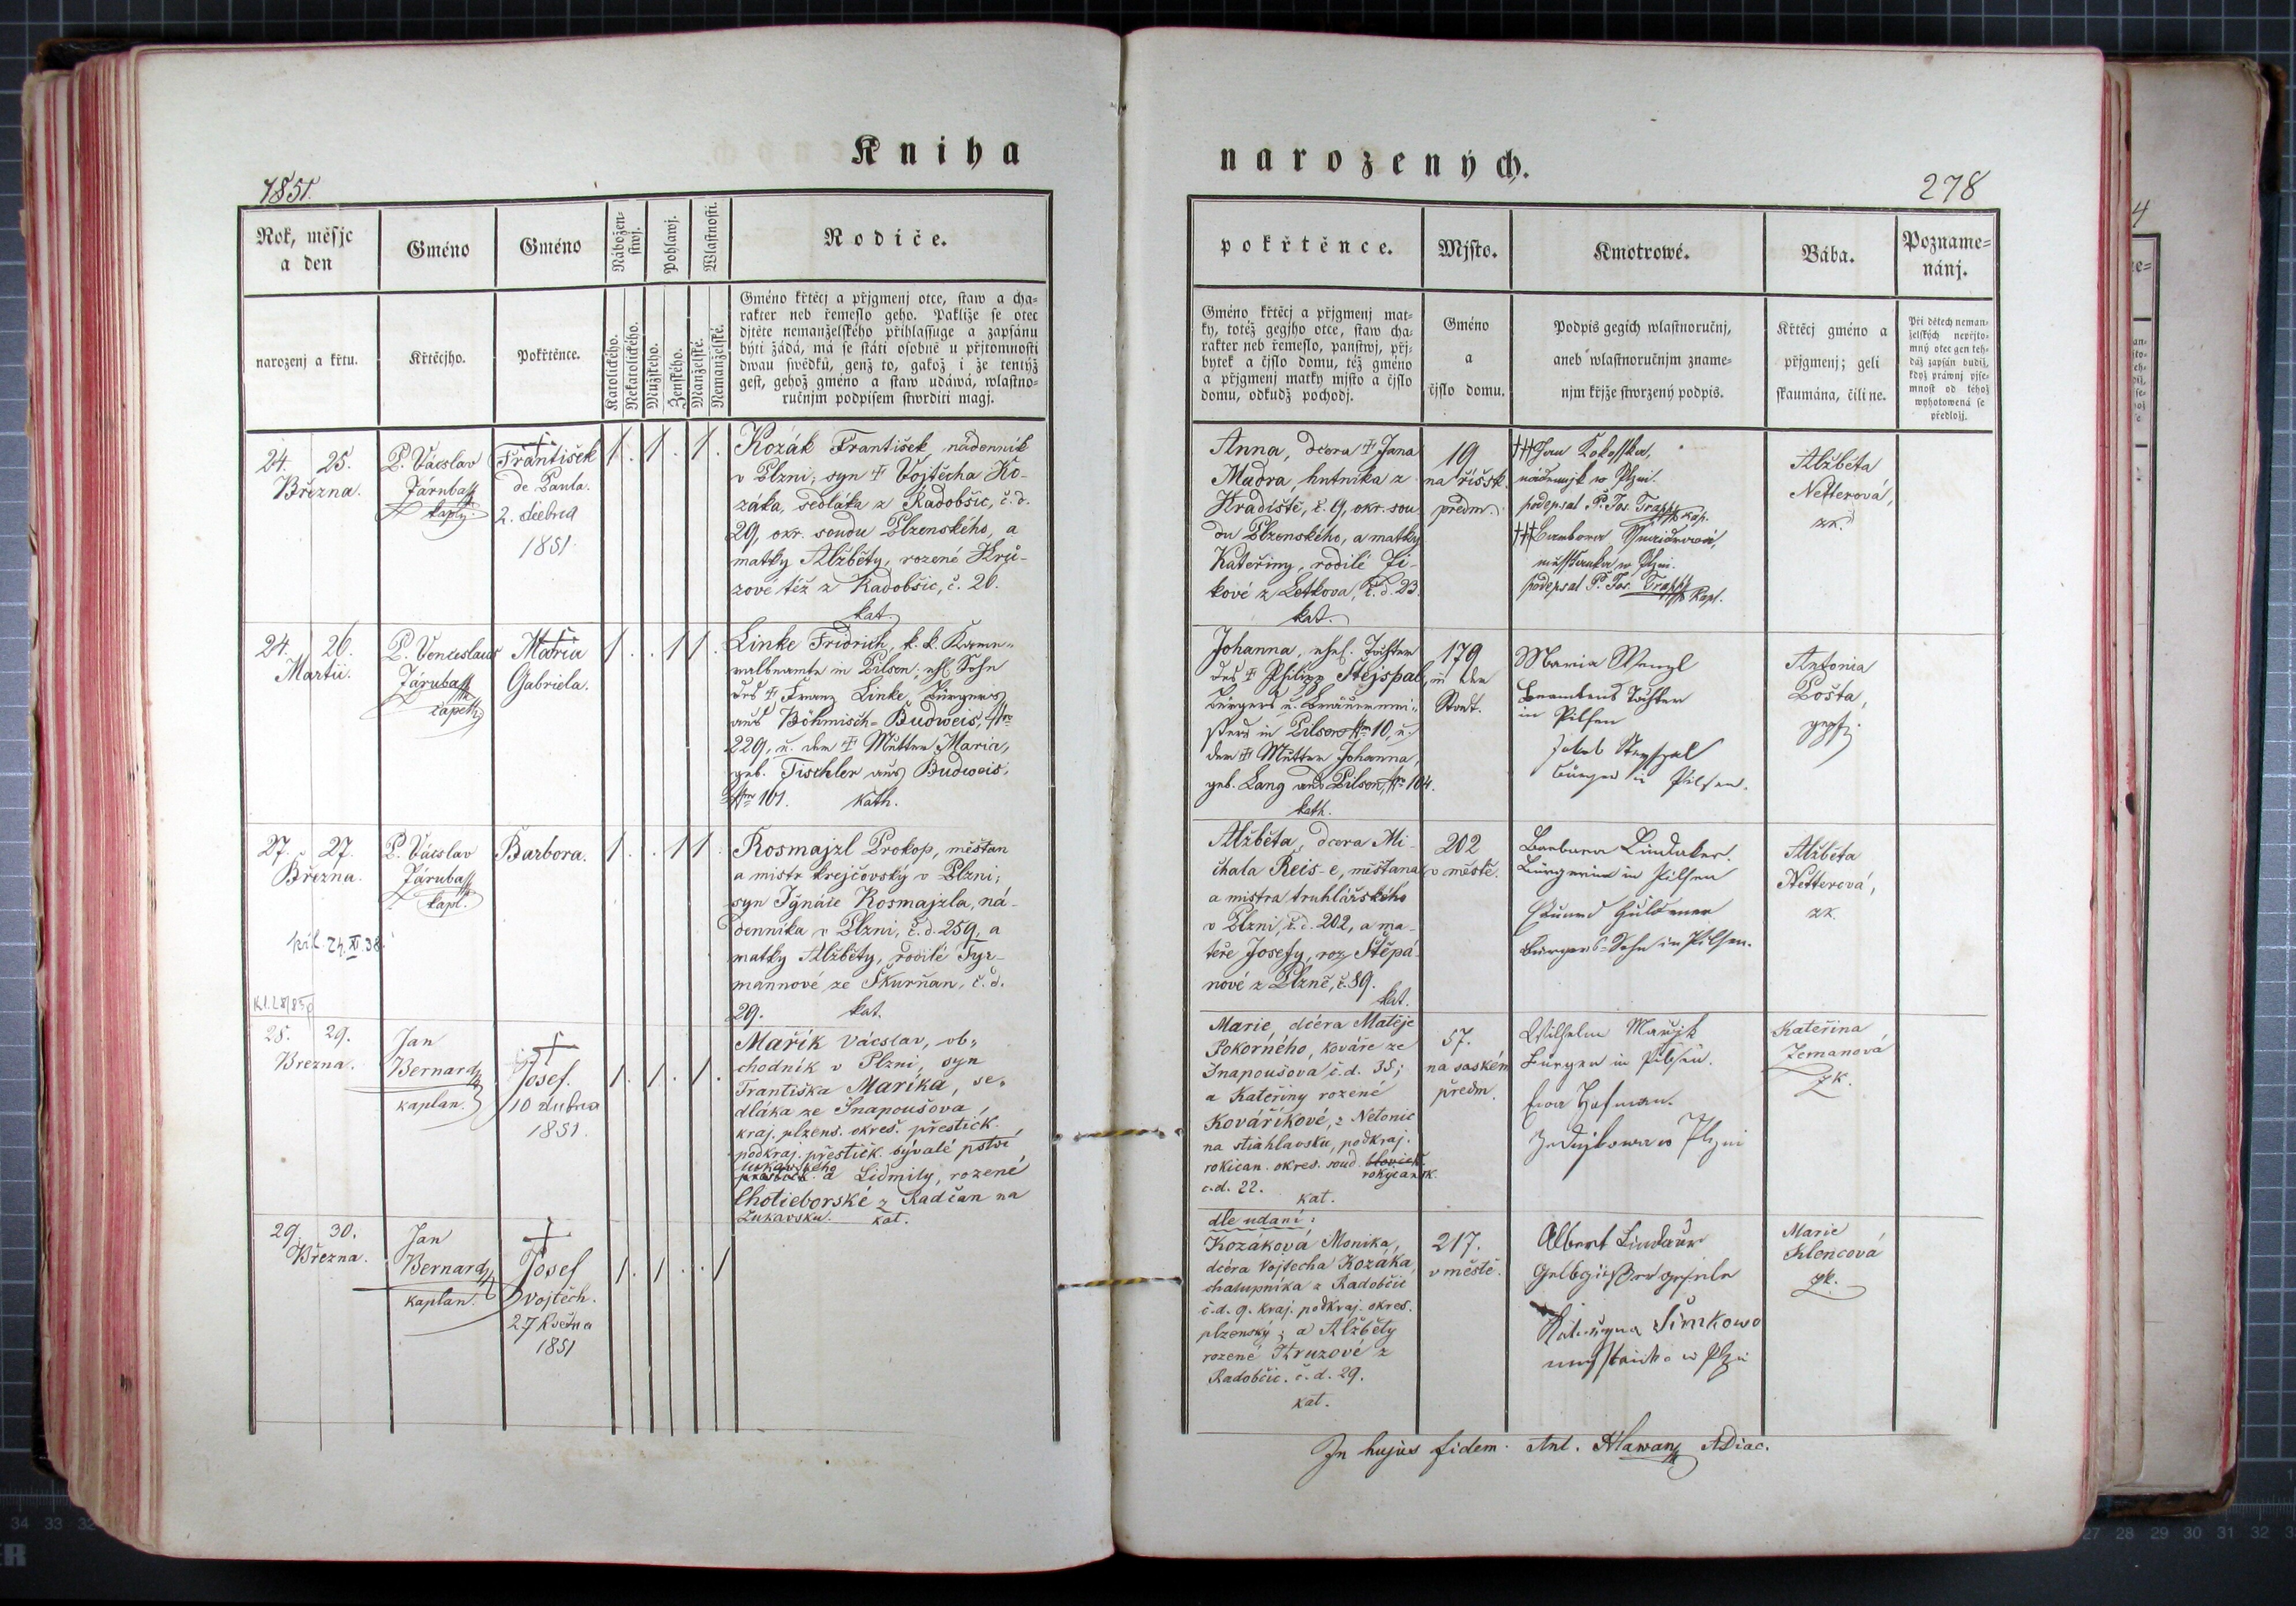 Kniha
narozených.
1851.
278
Rok, měsjc
a den
Gméno
Gméno
Nábožen-
stwj.
Pohlawj.
Wlastnosti.
Rodiče.
narozenj a křtu.
Křtěcjho.
Pokřtěnce.
Katolického.
Nekatolického.
Mužského.
Ženského.
Manželské.
Nemanželské.
Gméno křtěcj a přjgmenj otce, staw a cha-
rakter neb řemeslo geho. Pakliže se otec
djtěte nemanželského přihlassuge a zapsánu
býti žádá, má se státi osobně u přjtomnosti
dwau swědků, genž to, gakož i že tentýž
gest, gehož gméno a staw udáwá, wlastno-
ručnjm podpisem stwrditi magj.
24. 25.
Března.
P. Vácslav
Járuba
kapl.
František
de Paula.
2.
1851.
1. 1. 1.
Kozák František, nádenník
v Plzni; syn † Vojtěcha Ko-
záka, sedláka z Radobšic, č. d.
29, okr. soudu Plzenského, a
matky Alžběty, rozené Hrů-
zové též z Radobšic, č. 20.
kat.
24. 26.
Martii.
P. Venceslaus
Járuba
Maria
Gabriela.
1. . 1 1.
Linke Fridrich, k. k. Kame-
ralbeamte in Pilsen; ehl. Sohn
des † Franz Linke, Bürgers
aus Böhmisch-Budweis, Nro
229, u. der † Mutter Maria,
geb. Tischler aus Budweis,
Nro 101. Kath.
27. 27.
Března.
P. Vácslav
Járuba
kapl.
24. XI. 38.
Barbora.
1. . 1 1.
Rosmajzl Prokop, měštan
a mistr krejčovský v Plzni;
syn Ignáce Rosmajzla, ná-
denníka v Plzni, č. d. 259, a
matky Alžběty, rodilé Tyr-
mannové ze Škurňan, č. d.
29. kat.
28. 29.
Brezna.
Jan
Bernard
kaplan.
Josef.
10 dubna
1851.
1. 1. 1.
Mařík Vácslav, ob-
chodník v Plzni, syn
Františka Maříka, se-
dláka ze Snapoušova,
kraj. plzens. okres. přestick.
podkraj. přestičk. bývalé pstsví
lukavského
a Lidmily, rozené
Chotieborské z Radčan na
Lukavsku. kat.
29. 30.
Března.
Jan
Bernard
kaplan.
Josef
Vojtěch.
27 Května
1851
1. 1. . 1
pokřtěnce.
Mjsto.
Kmotrowé.
Bába.
Pozname-
nánj.
Gméno křtěcj a přjgmenj mat-
ky, totéž gegjho otce, staw cha-
rakter neb řemeslo, panstwj, přj-
bytek a čjslo domu, též gméno
a přjgmenj matky mjsto a čjslo
domu, odkudž pochodj.
Gméno
a
čjslo domu.
Podpis gegich wlastnoručnj,
aneb wlastnoručnjm zname-
njm křjže stwrzený podpis.
Křtěcj gméno a
přjgmenj; geli
skaumána, čili ne.
Při dětech neman-
želských nepřjto-
mný otec gen teh-
dáž zapsán budiž,
když práwnj pjse-
mnost od téhož
wyhotowená se
předložj.
Anna, dcera † Jana
Mudra, hutníka z
Hradiště, č. 9, okr. sou-
du Plzenského, a matky
Kateřiny, rodilé Fi-
kové z Letkova, č. d. 23.
kat.
19
na říšsk.
předm.
†††Jan Kokoška,
nádennjk w Plzni.
podepsal P. Jos. Trapp kap.
††† Barbora
měšťanka w Plzni.
podepsal P. Jos. Trapp Kapl.
Alžběta
Netterová,
zk.
Johanna, ehel. Tochter
des † Philipp Stejspal,
Bürgers u. Bräuermei-
sters in Pilsen Nro 10, u.
der † Mutter Johanna,
geb. Lang aus Pilsen, Nro 104.
kath.
179
in der
Stadt.
Maria Wenzl
Beamtens Tochter
in Pilsen
Jakob Steyspal
Bürger in Pilsen.
Antonia
Pošta,
gepf.
Alžběta, dcera Mi-
chala Reis-e, měštana
a mistra truhlářského
v Plzni, č. d. 202, a ma-
teře Josefy, roz. Štěpá-
nové z Plzně, č. 89.
kat.
202
v městě.
Barbara Lindauer.
Bürgerin in Pilsen
Eduard Guldener
Bürgers-Sohn in Pilsen.
Alžběta
Netterová,
zk.
Marie, dcéra Matěje
Pokorného, kováře ze
Snapoušova, č. d. 35;
a Kateřiny rozené
Kovářikové, z Netonic
na stiahlavsku, podkraj.
rokican. okres. soud.
rokycansk.
c. d. 22. kat.
57.
na saském
předm.
Wilhelm Mařjk
Bürger in Pilsen.
Ewa Hofman.
w Plzni
Kateřina
Zemanová
zk.
dle udaní:
Kozáková Monika,
dcéra Vojtecha Kozáka,
chalupníka z Radobčic
č. d. 9. kraj. podkraj. okres.
plzenský; a Alžběty
rozené Hruzové z
Radobčic. č. d. 29.
kat.
217.
v městě.
Albert Lindaur
Gelbgießergeselle
Katerzyna Šimkowo
w Plzni
Marie
Klencová
zk.
In hujus fidem. Ant. Hlawan ADiac.